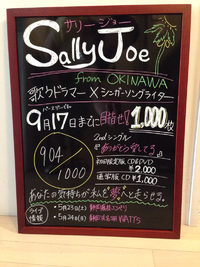 サリー・ジョー
Sally Joe
from OKINAWA
歌うドラマー × シンガーソングライター
バースデーライブ
9月17日までに 目指せ!! 1,000枚
904/1000
2ndシングル
初回限定盤 CD&DVD
¥2,000
通常盤 CD ¥1,000
あなたの気持ちが私を夢へと走らせる。
ライブ情報
・5月23日(土)
・5月24日(日) WATTS